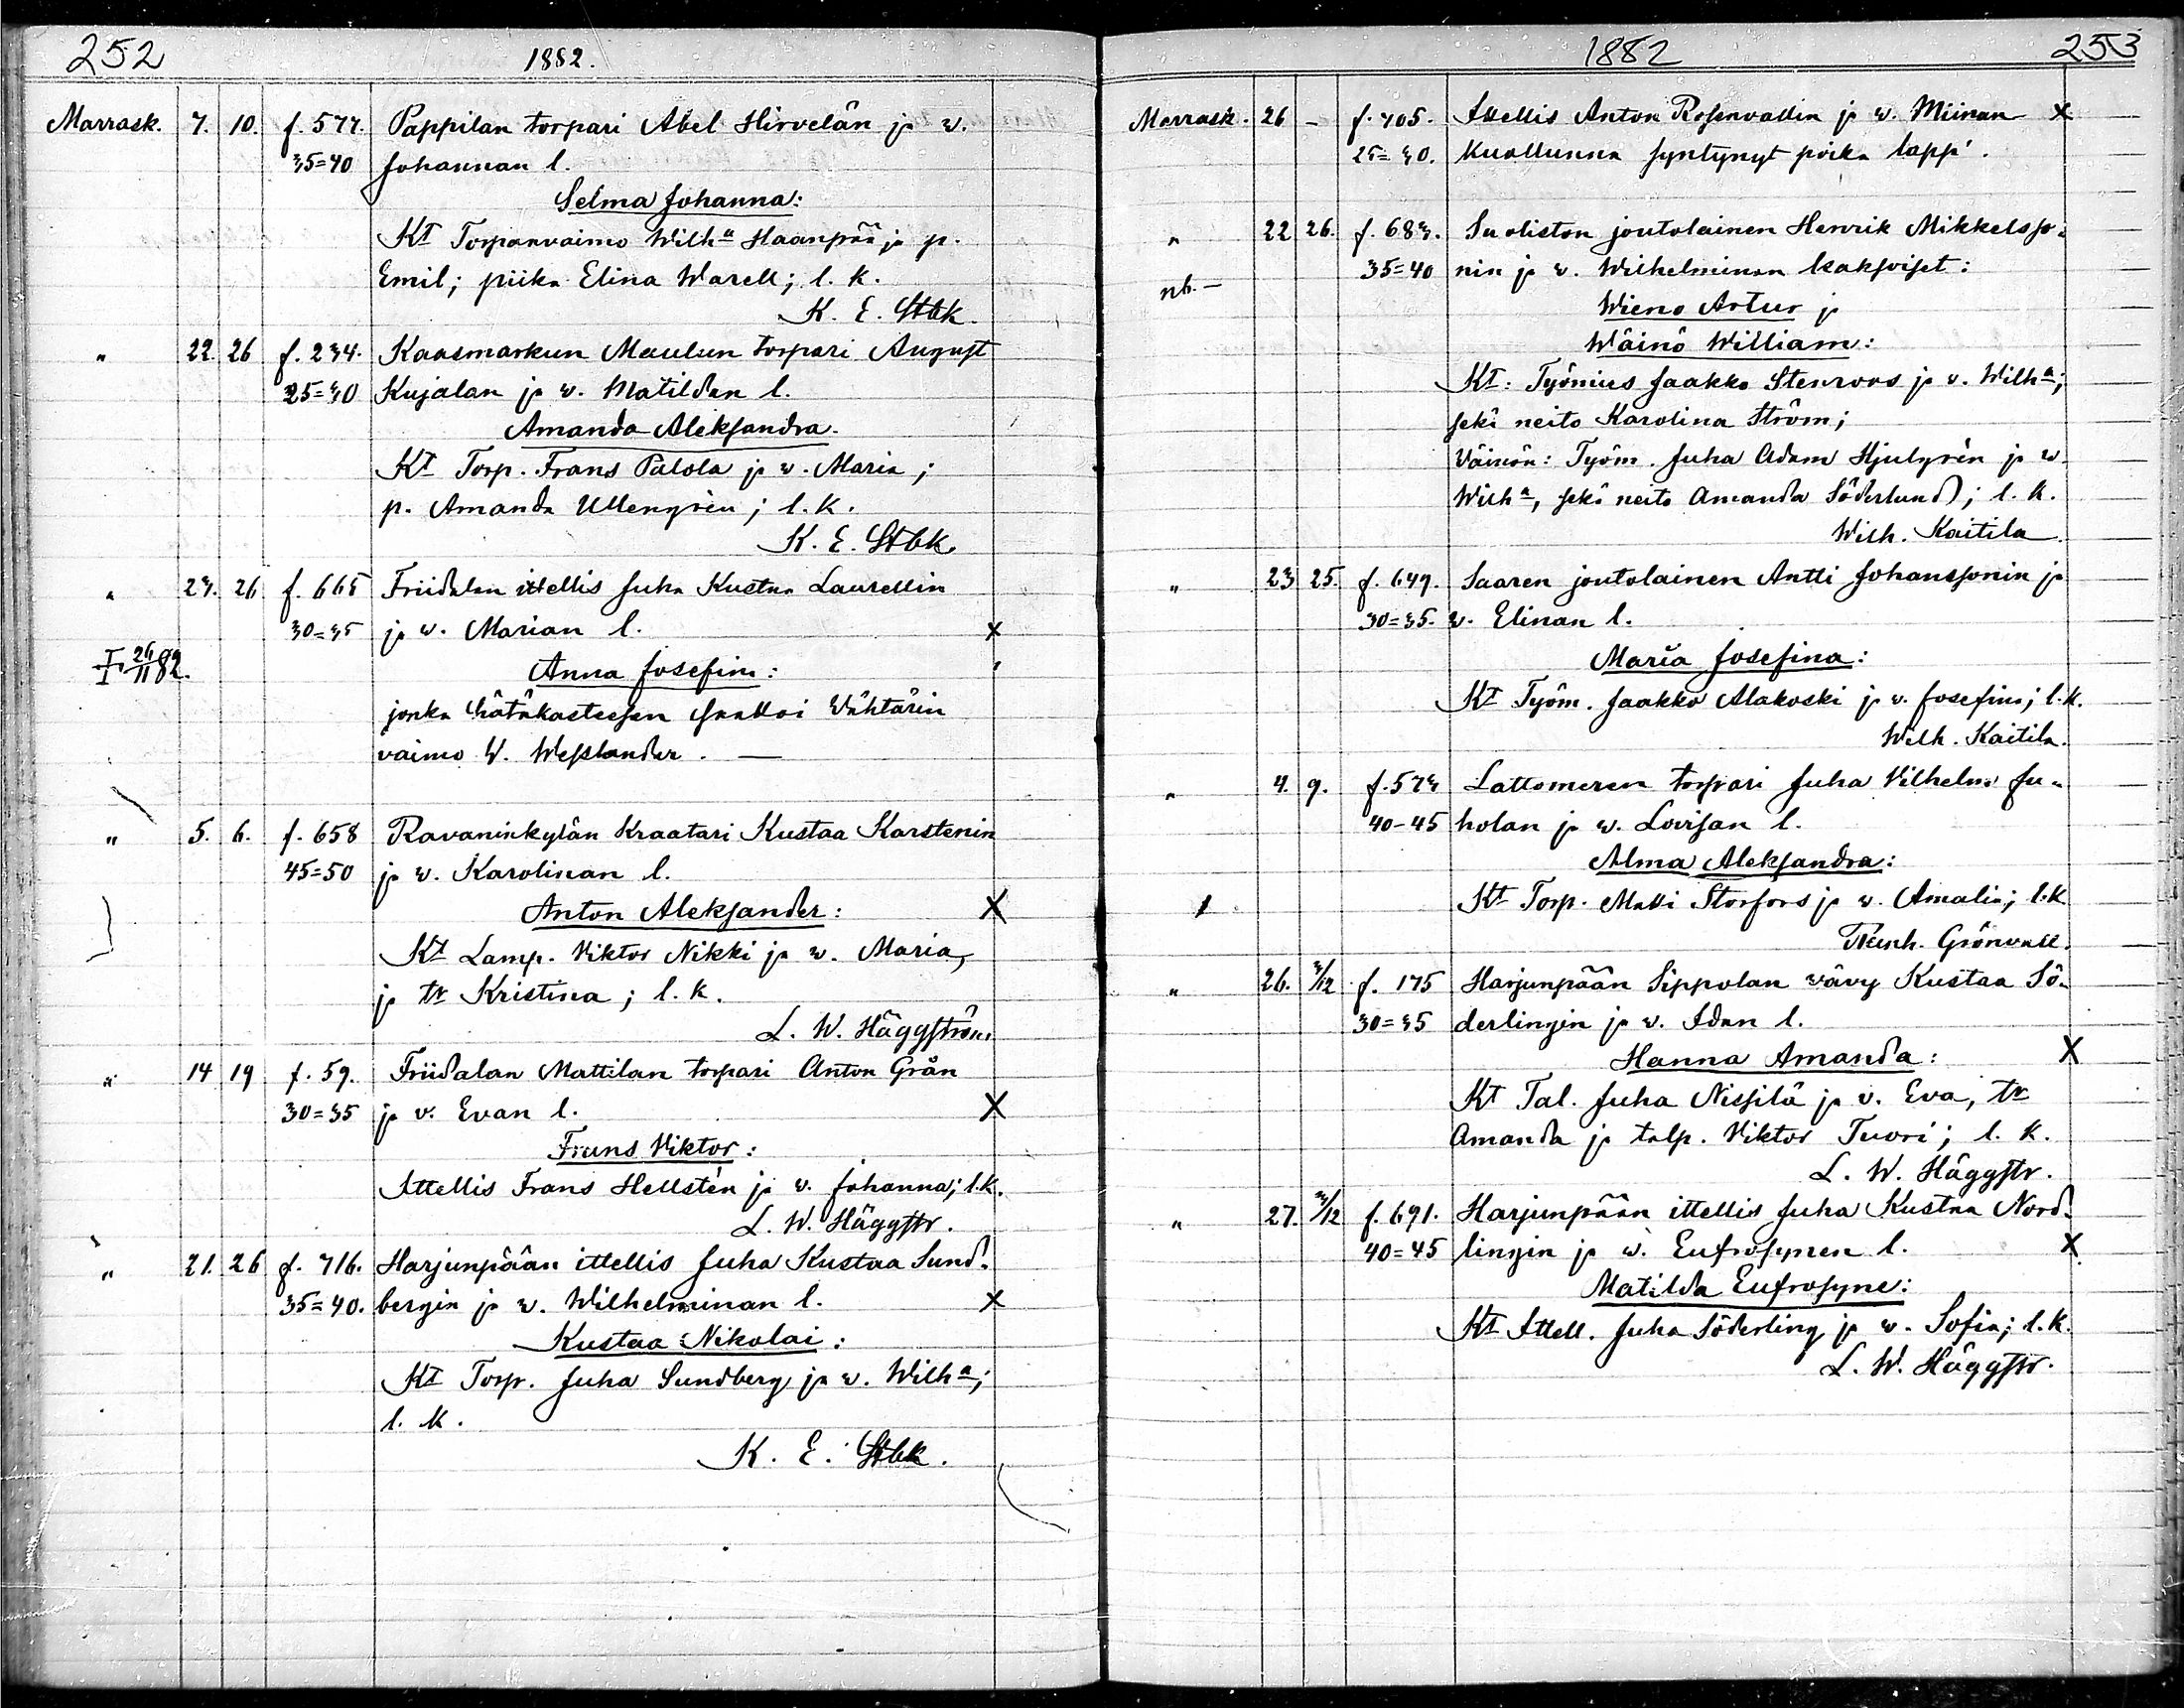 252
1882.
Marrask. 7. 10. f. 577. Pappilan torpari Abel Hirvelän ja w.
35=40 Johannan l.
Selma Johanna:
Kt Torpanvaimo Wilha Haanpää ja p.
Emil; piika Elina Warell; l. k.
K. E. Stbk.
" 22. 26 f. 234. Kaasmarkun Maulan torpari August
25=30 Kujalan ja w. Matildan l.
Amanda Aleksandra.
Kt Torp. Frans Palola ja w. Maria;
p. Amanda Ullengrén; l. k.
K. E. Stbk.
" 23. 26 f. 665 Friidalan ittellis Juha Kustaa Laurellin
30=35 ja w. Marian l. x
I. 26/11 82. Anna Josefina:
jonka hätäkasteessen saattoi Wähtärin
vaimo W. Wesslander. —
" 5. 6. f. 658 Ravaninkylän Kraatari Kustaa Karstenin
45=50 ja w. Karolinan l.
Anton Aleksander: X
Kt Lamp. Viktor Nikki ja w. Maria,
ja tr Kristina; l. k.
L. W. Häggström.
" 14 19 f. 59. Friidalan Mattilan torpari Anton Grån
30=35 ja v. Evan l. X
Frans Viktor:
Ittellis Frans Hellstén ja w. Johanna; l.k.
L. W. Häggstr.
" 21. 26 f. 716. Harjunpään ittellis Juha Kustaa Sund-
35=40. bergin ja w. Wilhelminan l. X
Kustaa Nikolai:
Kt Torp. Juha Sundberg ja w. Wilha;
l. k.
K. E. Stbk.
1882
253
Marrask. 26 – f. 705. Ittellis Anton Rosenvallin ja w. Miinan X
25=30. kuolluna syntynyt poika lapsi.
" 22 26. f. 683. Suoliston joutolainen Henrik Mikkelsso-
nb. – 35=40 nin ja w. Wilhelminan kaksoiset:
Wieno Artur ja
Wäinö William:
Kt: Työmies Jaakko Stenroos ja v. Wilha;
sekä neito Karolina Ström;
Väinön: Työm. Juha Adam Hjulgrén ja w.
Wilha, sekä neito Amanda Söderlund; l. k.
Wilh. Kaitila.
" 23 25. f. 649. Saaren joutolainen Antti Johanssonin ja
30=35. w. Elinan l.
Maria Josefina:
Kt Työm. Jaakko Alakoski ja v. Josefina; l.k.
Wilh. Kaitila.
" 4. 9. f. 573 Lattomeren torpari Juha Vilhelm Ju-
40-45 holan ja w. Lovisan l.
Alma Aleksandra:
Kt Torp. Matti Storfors ja w. Amalia; l.k
Reinh. Grönvall.
" 26. 3/12 f. 175 Harjunpään Sippolan vävy Kustaa Sö-
30=35 derlingin ja w. Idan l.
Hanna Amanda: X
Kt Tal. Juha Nissilä ja v. Eva, tr
Amanda ja talp. Viktor Tuori; l. k.
L. W. Häggstr.
" 27. 3/12 f. 691. Harjunpään ittellis Juha Kustaa Nord-
40=45 lingin ja w. Eufrosynen l. X
Matilda Eufrosyne:
Kt Ittell. Juha Söderling ja w. Sofia; l.k.
L. W. Häggstr.